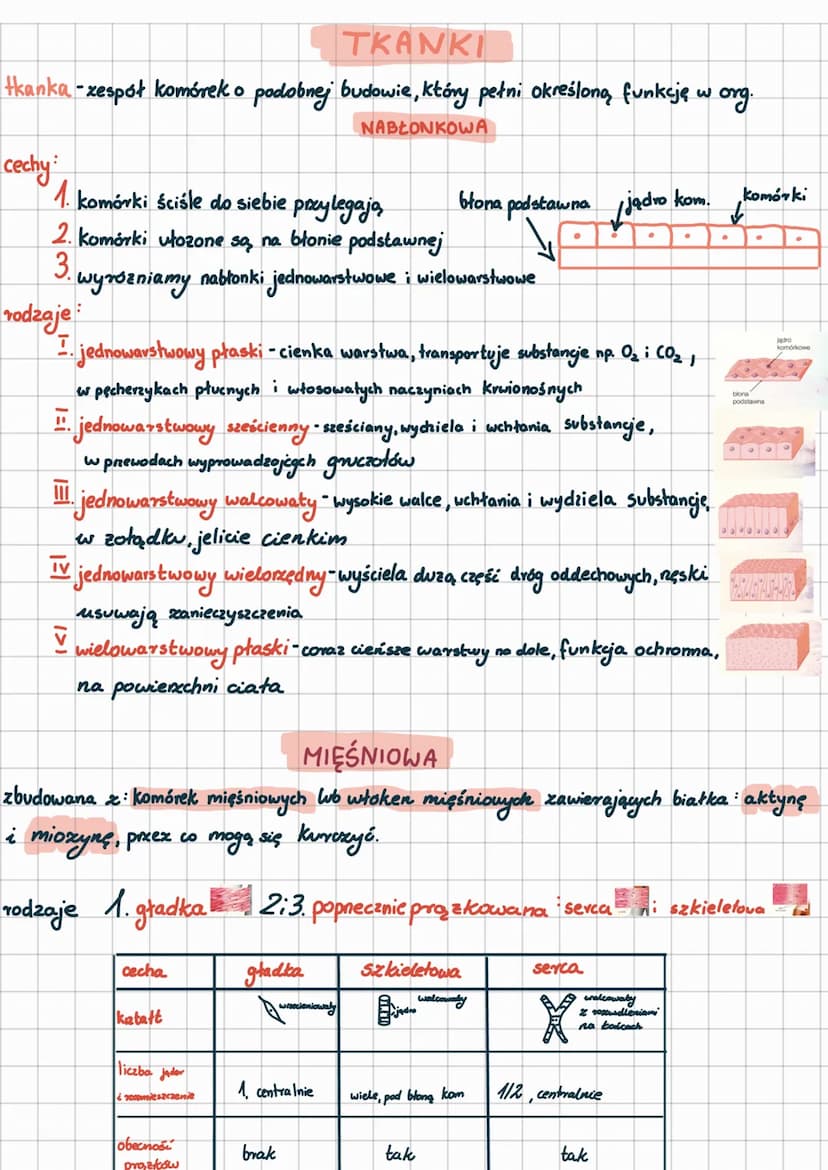 TKANKI
tkanka - zespół komórek o podobnej budowie, który pełni określoną funkcję w org.
NABŁONKOWA
cechy:
1. komórki ściśle do siebie przylegają
2. komórki ułożone są na błonie podstawnej
3. wyróżniamy nabłonki jednowarstwowe i wielowarstwowe
błona podstawna jądro kom. komórki
rodzaje:
I. jednowarstwowy płaski - cienka warstwa, transportuje substancje np. O₂ i CO₂,
w pęcherzykach płucnych i włosowatych naczyniach krwionośnych
jądro
komórkowe
błona
podstawna
II. jednowarstwowy sześcienny - sześciany, wydziela i wchłania substancje,
w przewodach wyprowadzających gruczołów
III. jednowarstwowy walcowaty - wysokie walce, wchłania i wydziela substancje,
w żołądku, jelicie cienkim
IV jednowarstwowy wielorzędny - wyściela dużą część dróg oddechowych, rzęski
usuwają zanieczyszczenia
V wielowarstwowy płaski - coraz cieńsze warstwy na dole, funkcja ochronna,
na powierzchni ciała
MIĘŚNIOWA
zbudowana z: komórek mięśniowych lub włóken mięśniowych zawierających białka: aktynę
i miozynę, przez co mogą się kurczyć.
rodzaje 1. gładka 2i3. poprzecznie prążkowana: serca i szkieletowa
cecha gładka szkieletowa serca
kształt wrzecionowaty jądro walcowaty walcowaty
z rozwidleniami
na końcach
liczba jąder
i rozmieszczenie 1, centralnie wiele, pod błoną kom 1/2, centralnie
obecność
prążków brak tak tak